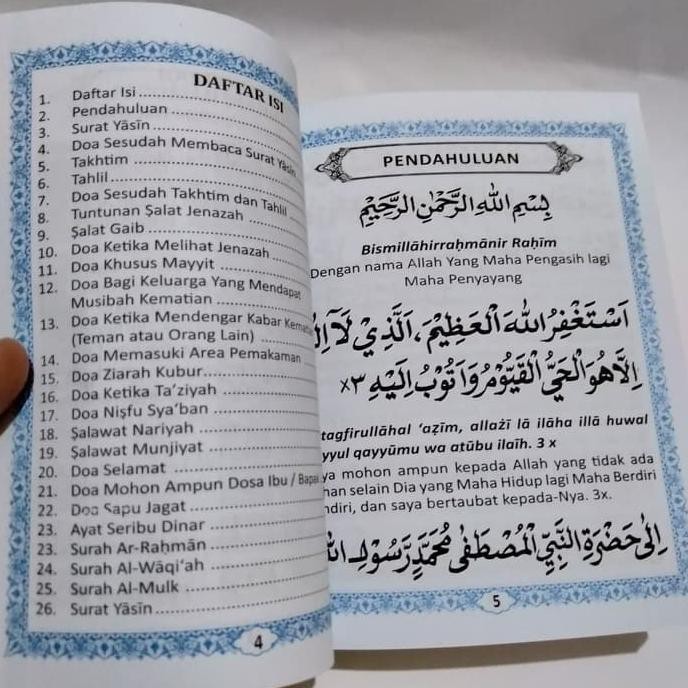 DAFTAR ISI
1. Daftar Isi
2. Pendahuluan
3. Surat Yāsīn
4. Doa Sesudah Membaca Surat Yāsīn
5. Takhtim
6. Tahlil
7. Doa Sesudah Takhtim dan Tahlil
8. Tuntunan Ṣalat Jenazah
9. Ṣalat Gaib
10. Doa Ketika Melihat Jenazah
11. Doa Khusus Mayyit
12. Doa Bagi Keluarga Yang Mendapat
Musibah Kematian
13. Doa Ketika Mendengar Kabar
(Teman atau Orang Lain)
14. Doa Memasuki Area Pemakaman
15. Doa Ziarah Kubur
16. Doa Ketika Ta’ziyah
17. Doa Niṣfu Sya‘ban
18. Ṣalawat Nariyah
19. Ṣalawat Munjiyat
20. Doa Selamat
21. Doa Mohon Ampun Dosa Ibu / Bapak
22. Doa Sapu Jagat
23. Ayat Seribu Dinar
23. Surah Ar-Raḥmān
24. Surah Al-Wāqi‘ah
25. Surah Al-Mulk
26. Surat Yāsīn
4
PENDAHULUAN
بِسْمِ اللهِ الرَّحْمٰنِ الرَّحِيْمِ
Bismillāhirraḥmānir Raḥīm
Dengan nama Allah Yang Maha Pengasih lagi
Maha Penyayang
اَسْتَغْفِرُ اللهَ الْعَظِيْمَ، اَلَّذِيْ لَآ
اِلَّا هُوَ الْحَيُّ الْقَيُّوْمُ وَاَتُوْبُ اِلَيْهِ ×٣
tagfirullāhal ‘aẓīm, allażī lā ilāha illā huwal
yyul qayyūmu wa atūbu ilaīh. 3 x
ya mohon ampun kepada Allah yang tidak ada
han selain Dia yang Maha Hidup lagi Maha Berdiri
ndiri, dan saya bertaubat kepada-Nya. 3x.
اِلٰى حَضْرَةِ النَّبِيِّ الْمُصْطَفٰى مُحَمَّدٍ رَسُوْلِ
5